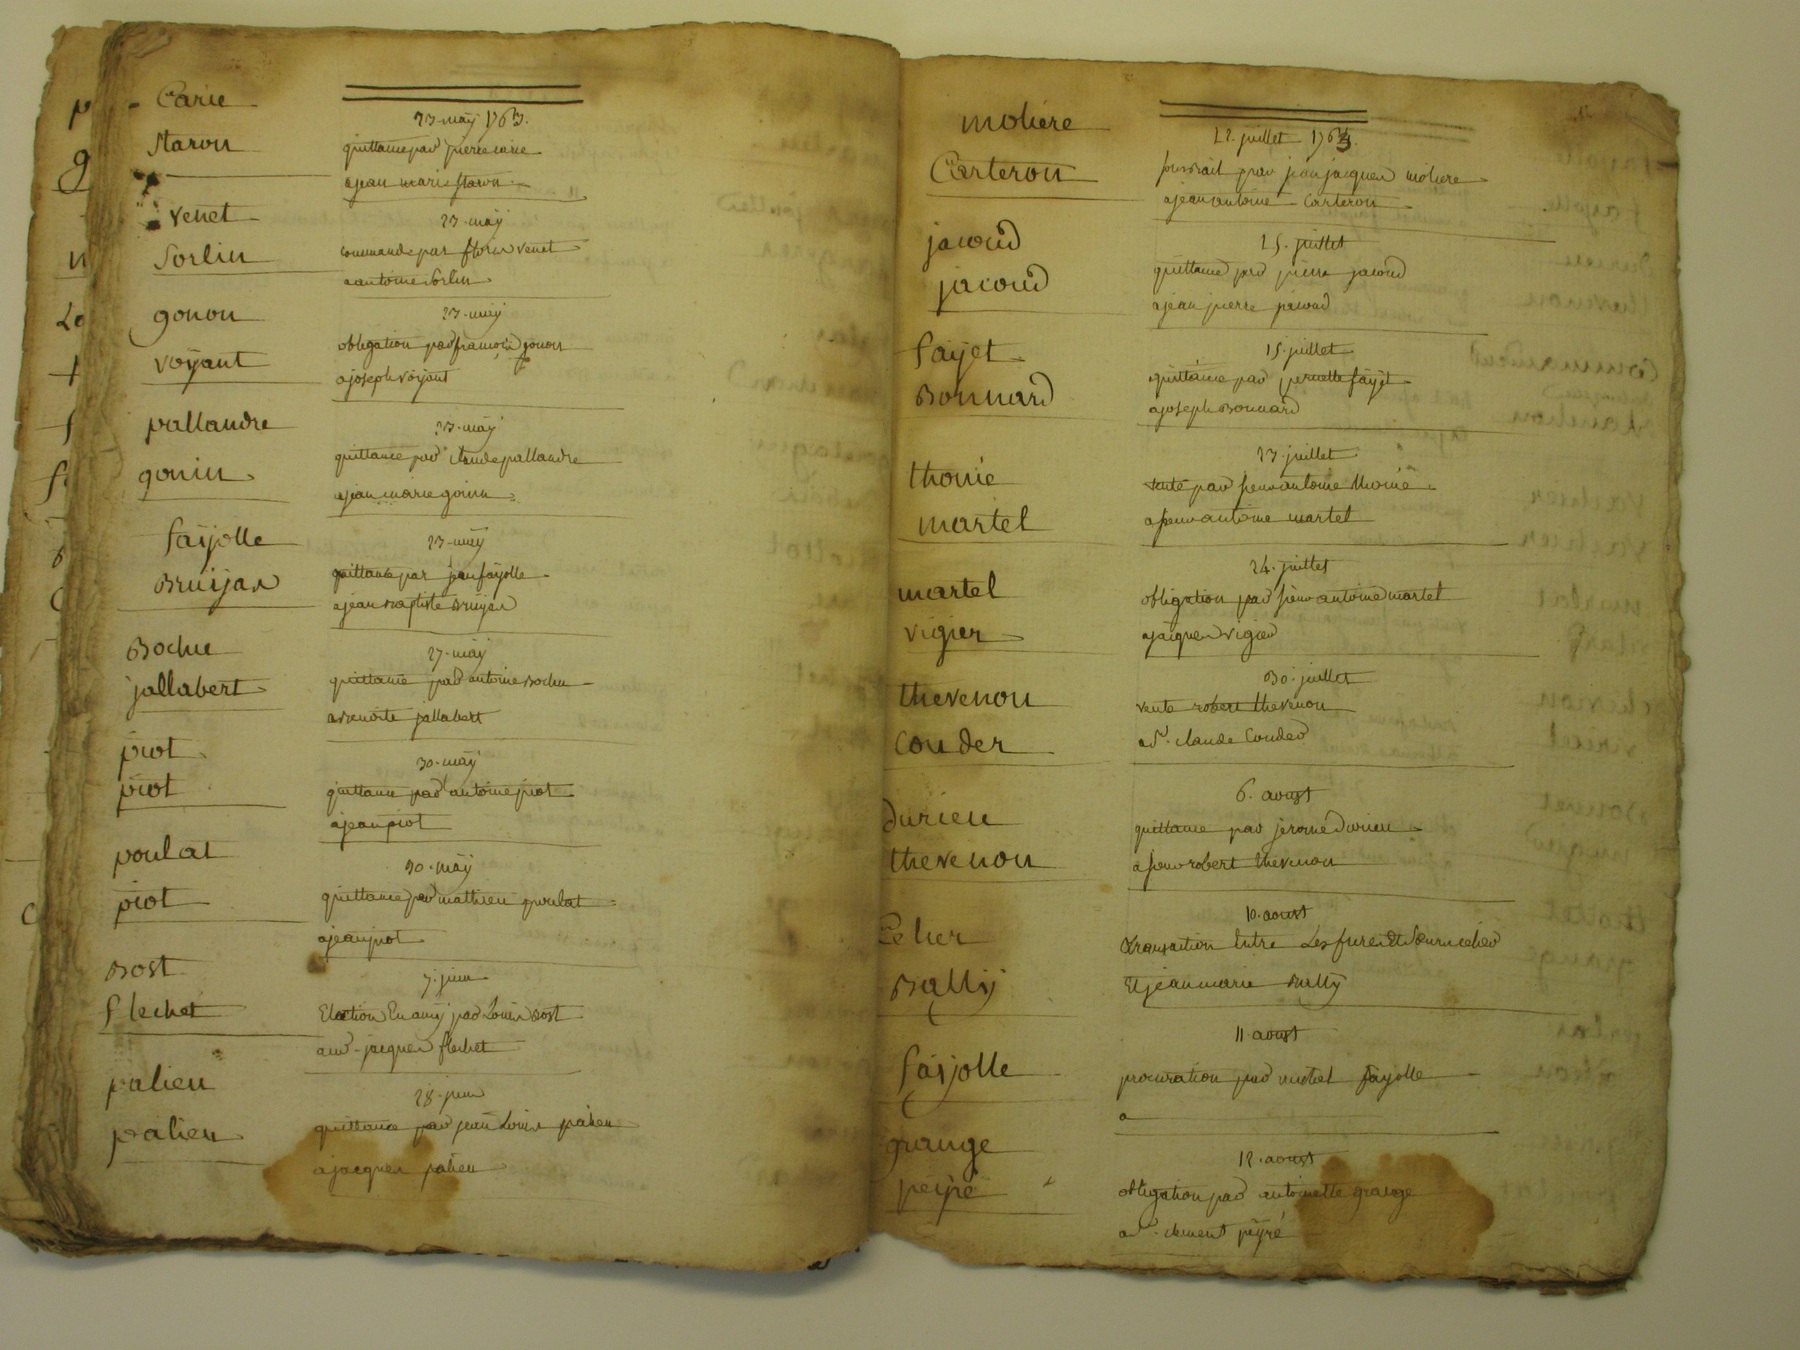 Carie
23 may 1763.
Staron
quittance par pierre carie
a jean marie staron
venet
23 may
Sorlin
commande par fleurie venet
a antoine sorlin
gonon
23 may
voyant
obligation par francois gonon
a joseph voyant
pallandre
23 may
gonin
quittance par claude pallandre
a jean marie gonin
fayolle
23 may
Bruijas
quittance par jean fayolle
a jean Baptiste Bruyas
Bochu
27 may
jallabert
quittance par antoine Bochu
a Benoite jallabert
piot
30 may
piot
quittance par antoine piot
a jean piot
poulat
30 may
piot
quittance par mathieu poulat
a jean piot
Bost
7 juin
flechet
Election En amy par Louis Bost
jacques flechet
palieu
28 juin
palieu
quittance par jean Louis palieu
a jacques palieu
moliere
juillet 1763
Carteron
par jean jacques moliere
a jean antoine Carteron
jacoud
25 juillet
jacoud
quittance par pierre jacoud
a jean pierre jacoud
fayet
15 juillet
Bonnard
quittance par pernette fayet
a joseph Bonnard
thonie
23 juillet
martel
vente par sieur antoine thonie
a sieur antoine martel
martel
24 juillet
vigier
obligation par sieur antoine martel
a jacques vigier
thevenon
30 juillet
Couder
vente robert thevenon
a dr. claude Couder
durieu
6. aoust
thevenon
quittance par jerome durieu
a sieur robert thevenon
10. aoust
transaction Entre Les freres Et soeurs
Bally
Et jean marie Bally
11 aoust
fayolle
procuration par michel fayolle
a
grange
12. aoust
peyré
obligation par antoinette grange
a dr. clement peyré